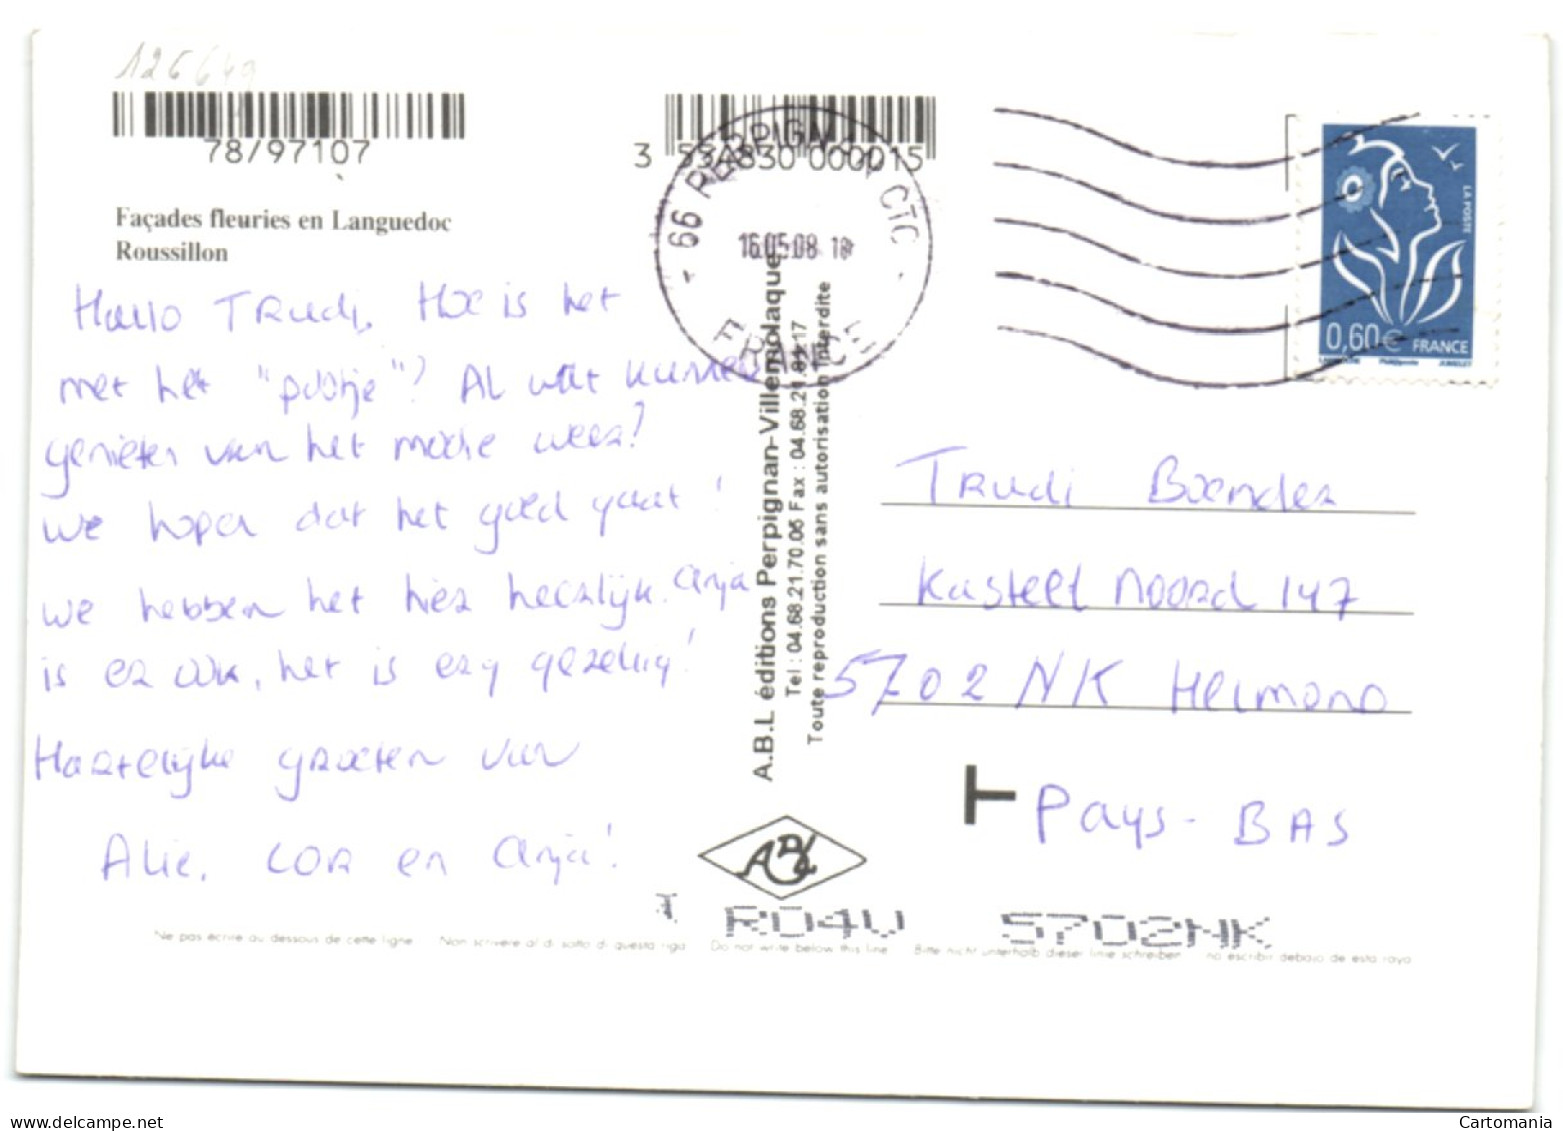 126649
78/97107
3 534830 000015
Façades fleuries en Languedoc
Roussillon
66 PERPIGNAN CTC
16.05.08
FRANCE
LA POSTE
0,60€ FRANCE
Hallo Trudi, Hoe is het
met het "pootje"? Al wat kunnen
genieten van het mooie weer?
We hopen dat het goed gaat!
We hebben het hier heerlijk. Anja
is er ook, het is erg gezellig!
Hartelijke groeten van
Alie, Cor en Anja!
A.B.L éditions Perpignan-Villemolaque
Tel : 04.68.21.70.06 Fax : 04.68.21.89.17
Toute reproduction sans autorisation interdite
Trudi Boender
Kasteel Noord 147
5702 NK Helmond
Pays-BAS
ABL
R04V 5702NK
Ne pas écrire au dessous de cette ligne Non scrivere al di sotto di questa riga Do not write below this line Bitte nicht unterhalb dieser linie schreiben no escribir debajo de esta raya
delcampe.net
Cartomania